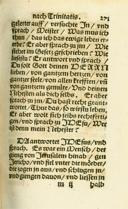 nach Trinitatis. 271
gelerter auff / versuchte Jn / und
sprach / Meister / Was mus ich
thun / das ich das ewige leben er-
be? Er aber sprach zu jm / Wie
stehet im Gesetz geschrieben? Wie
liesestu? Er antwort und sprach /
Du solt Gott deinen HERRN
lieben / von gantzem hertzen / von
gantzer seele / von allen krefften /
und von gantzem gemüte / Und deinen
Nehesten als dich selbst. Er aber
sprach zu jm / Du hast recht geant-
wortet / Thue das / so wirstu leben.
Er aber wolt sich selbs rechtferti-
gen / und sprach zu JHESU / Wer
ist denn mein Nehester?
Da antwortet JHESUS / und
sprach / Es war ein Mensch / der
gieng von Jerusalem hinab / gen
Jericho / und fiel unter die mörder /
die zogen jn aus / und schlugen jn /
und giengen davon / und liessen jn
halb